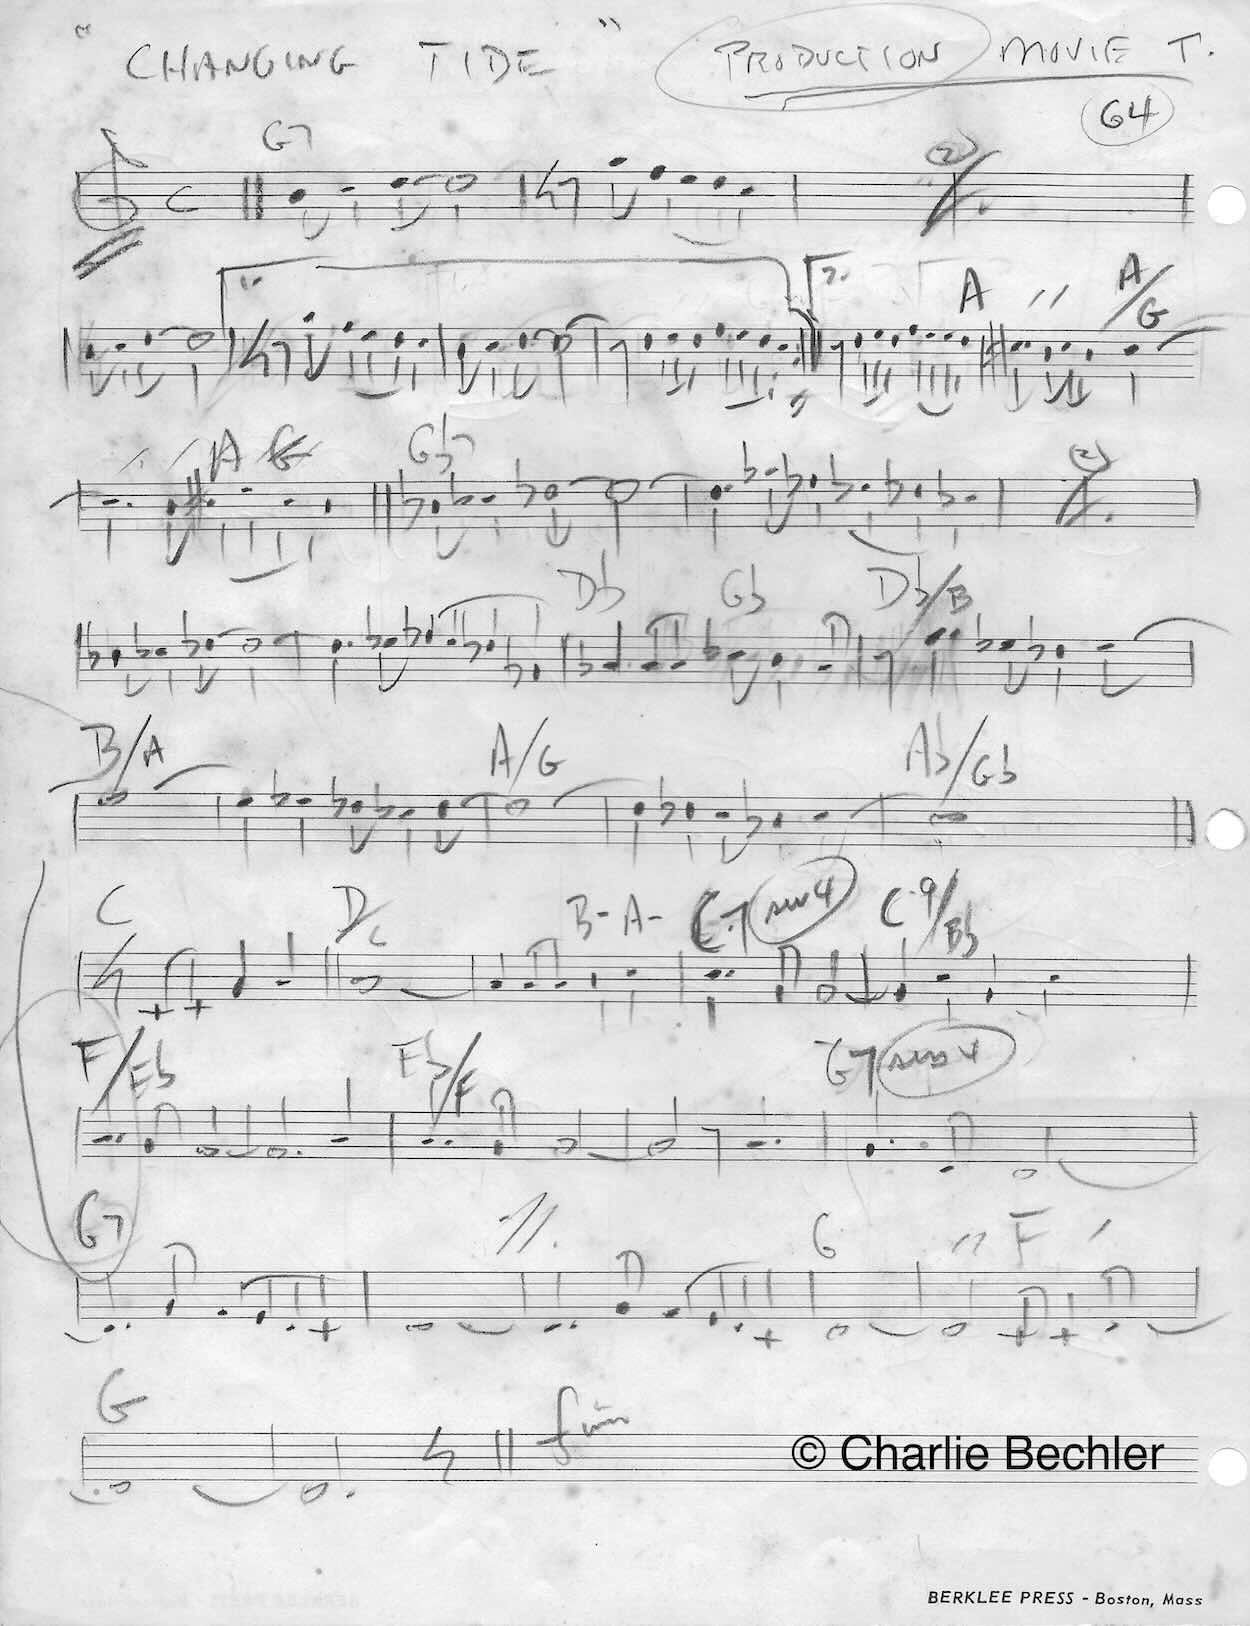 "CHANGING TIDE" PRODUCTION MOVIE T.
64
G7
C (2)
1. 2. A " A/G
A G Gb7
(2)
Db Gb Db/B
B/A A/G Ab/Gb
C D/C B- A- C-7 sus4 C-9/Bb
F/Eb Eb/F G7 sus4
G7 G " F '
G
fin
© Charlie Bechler
BERKLEE PRESS - Boston, Mass